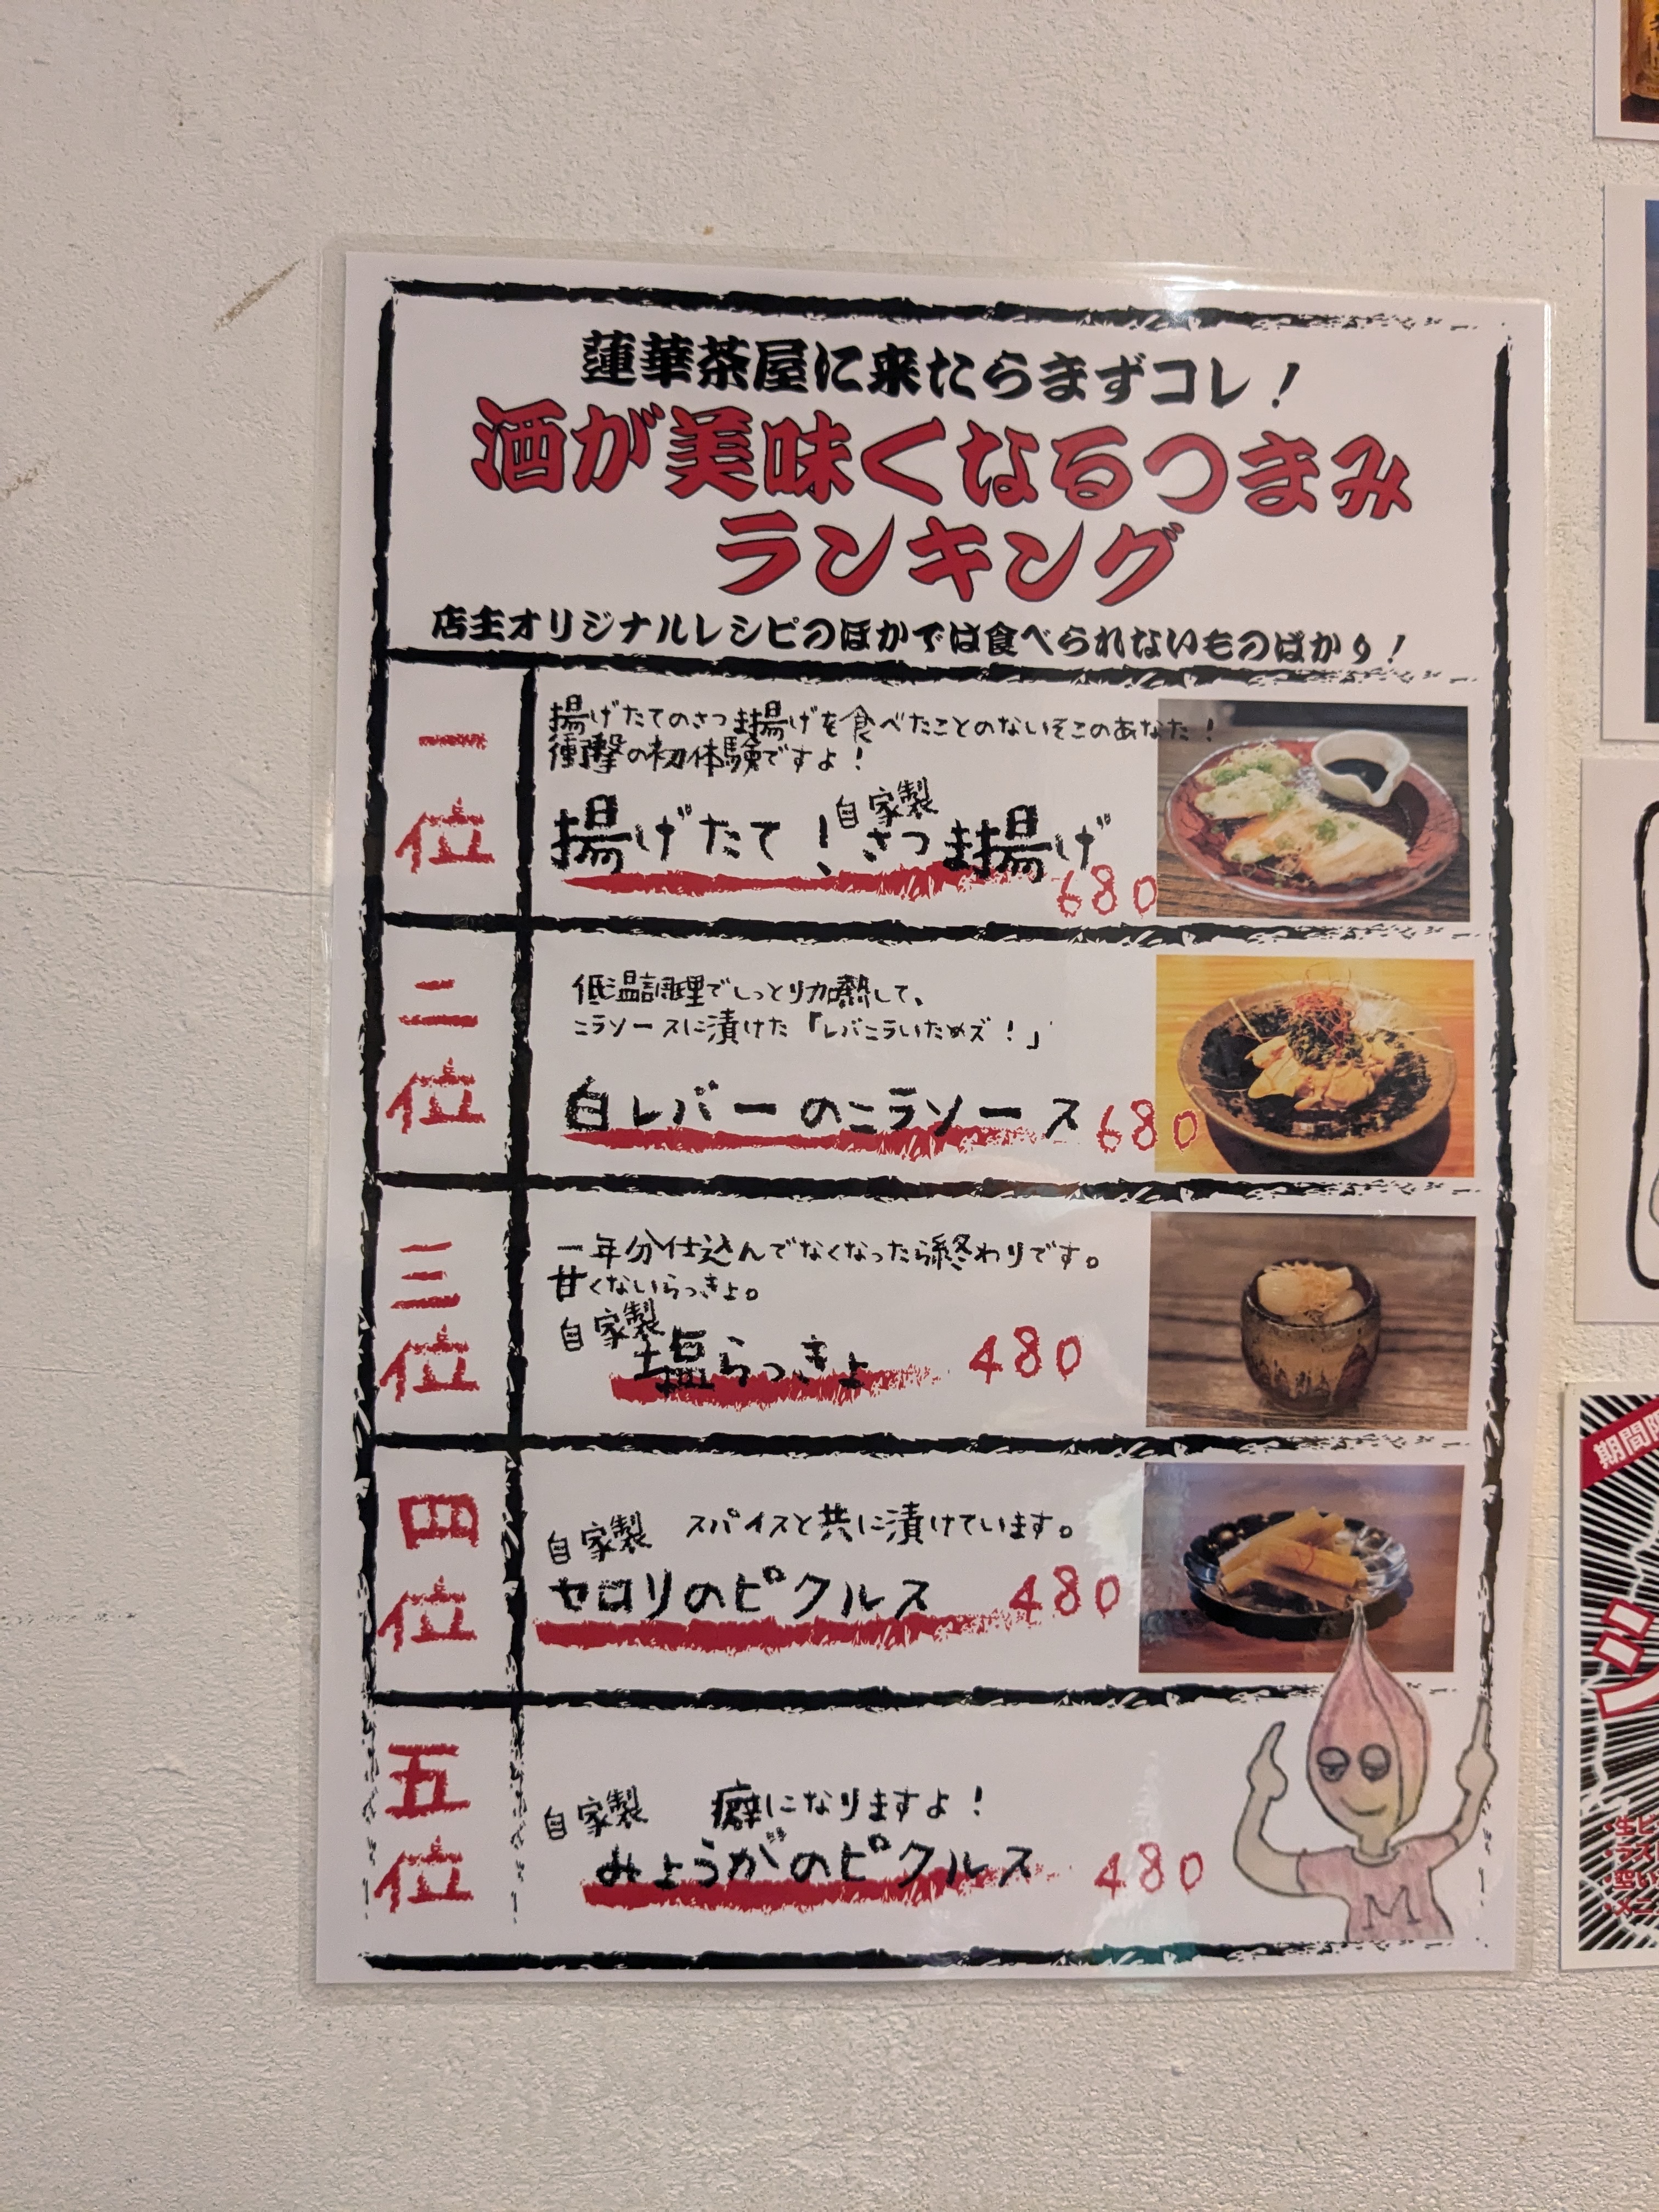 蓮華茶屋に来たらまずコレ!
酒が美味くなるつまみ
ランキング
店主オリジナルレシピのほかでは食べられないものばかり!
一位
揚げたてのさつま揚げを食べたことのないそこのあなた!
衝撃の初体験ですよ!
揚げたて!自家製さつま揚げ
680
二位
低温調理でしっとり加熱して、
ニラソースに漬けた「レバニラいためズ!」
白レバーのニラソース 680
三位
一年分仕込んでなくなったら終わりです。
甘くないらっきょ。
自家製
塩らっきょ 480
四位
自家製 スパイスと共に漬けています。
セロリのピクルス 480
五位
自家製 癖になりますよ!
みょうがのピクルス 480
M
期間